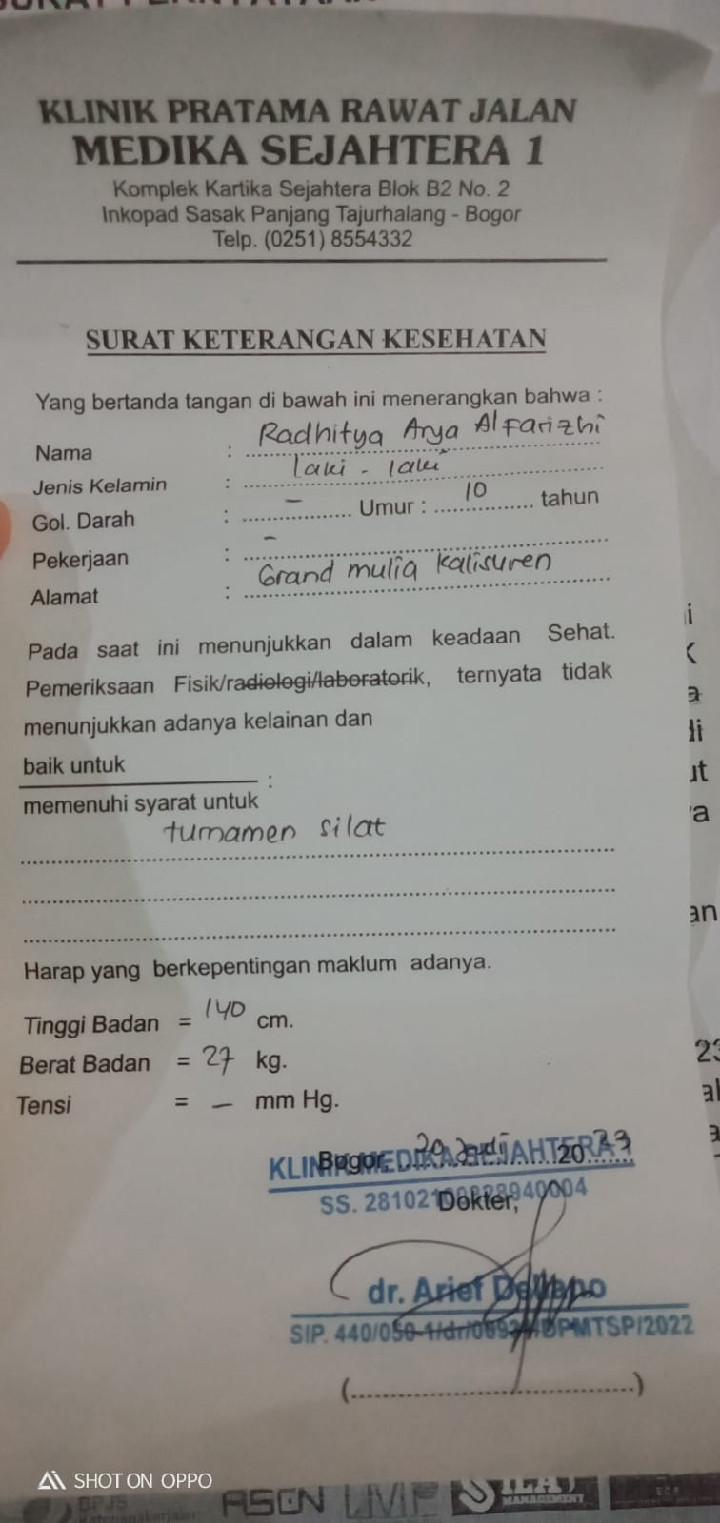 KLINIK PRATAMA RAWAT JALAN
MEDIKA SEJAHTERA 1
Komplek Kartika Sejahtera Blok B2 No. 2
Inkopad Sasak Panjang Tajurhalang - Bogor
Telp. (0251) 8554332
SURAT KETERANGAN KESEHATAN
Yang bertanda tangan di bawah ini menerangkan bahwa :
Nama : Radhitya Arya Alfarizhi
Jenis Kelamin : laki - laki
Gol. Darah : - Umur : 10 tahun
Pekerjaan : -
Alamat : Grand mulia kalisuren
Pada saat ini menunjukkan dalam keadaan Sehat.
Pemeriksaan Fisik/radiologi/laboratorik, ternyata tidak
menunjukkan adanya kelainan dan
baik untuk
memenuhi syarat untuk :
turnamen silat
Harap yang berkepentingan maklum adanya.
Tinggi Badan = 140 cm.
Berat Badan = 27 kg.
Tensi = - mm Hg.
Bogor, 20 2023
KLINIK MEDIKA SEJAHTERA
Dokter,
dr. Arief
(..............................)
SHOT ON OPPO
ASCN
SILAT
MANAGEMENT